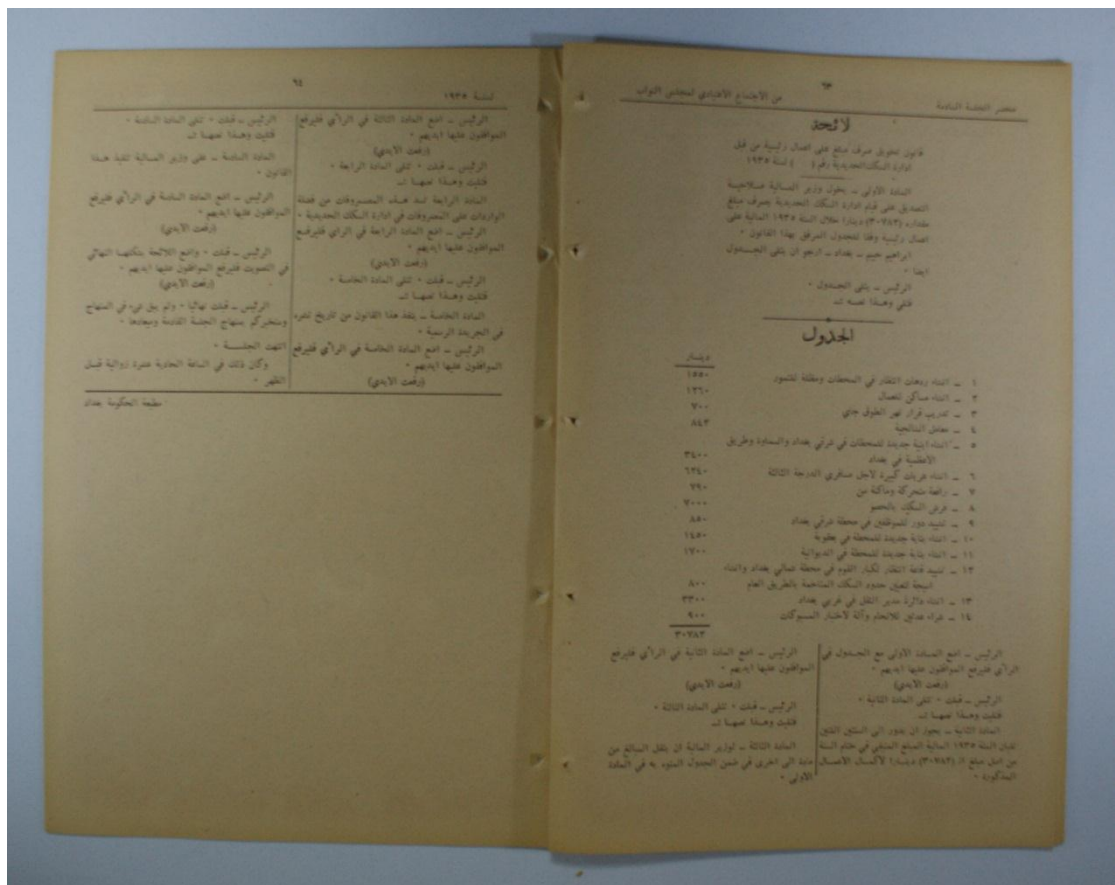 ٦٣
محضر الجلسة السادسة
من الاجتماع الاعتيادي لمجلس النواب
لائحة
قانون تخويل صرف مبلغ على اعمال رئيسية من قبل
ادارة السكك الحديدية رقم ( ) لسنة ١٩٣٥
المادة الاولى ــ يخول وزير المالية صلاحية
التصديق على قيام ادارة السكك الحديدية بصرف مبلغ
مقداره (٣٠٧٨٣) دينارا خلال السنة ١٩٣٥ المالية على
اعمال رئيسية وفقا للجدول المرفق بهذا القانون ٠
ابراهيم حييم ــ بغداد ــ ارجو ان يتلى الجــدول
ايضا ٠
الرئيس ــ يتلى الجدول ٠
فتلي وهــذا نصه :ــ
الجدول
دينــار
١ ــ انشاء ردهات انتظار في المحطات ومظلة للتمور ١٥٥٠
٢ ــ انشاء مساكن للعمال ١٣٦٠
٣ ــ تدريب قرار نهر الطوق جاي ٧٠٠
٤ ــ معامل الشالجية ٨٤٣
٥ ــ انشاء ابنية جديدة للمحطات في شرقي بغداد والسماوة وطريق
الأعظمية في بغداد ٣٤٠٠
٦ ــ انشاء عربات كبيرة لاجل مسافري الدرجة الثالثة ٦٣٤٠
٧ ــ رافعة متحركة وماكنة من ٧٩٠
٨ ــ فرش السكك بالحصو ٧٠٠٠
٩ ــ تشييد دور للموظفين في محطة شرقي بغداد ٨٥٠
١٠ ــ انشاء بناية جديدة للمحطة في بعقوبة ١٤٥٠
١١ ــ انشاء بناية جديدة للمحطة في الديوانية ١٧٠٠
١٢ ــ تشييد قاعة انتظار لكبار القوم في محطة شمالي بغداد وانشاء
اسيجة لتعيين حدود السكك المتاخمة بالطريق العام ٨٠٠
١٣ ــ انشاء دائرة مدير النقل في غربي بغداد ٣٣٠٠
١٤ ــ شراء عدتين للالحام وآلة لاختبار المسبوكات ٩٠٠
٣٠٧٨٣
الرئيس ــ اضع المــادة الاولى مع الجــدول في
الرأي فليرفع الموافقون عليها ايديهم ٠
(رفعت الايدي)
الرئيس ــ قبلت ٠ تتلى المادة الثانية ٠
فتليت وهــذا نصهــا :ــ
المادة الثانية ــ يجوز ان يدور الى السنتين اللتين
تليان السنة ١٩٣٥ المالية المبلغ المتبقي في ختام السنة
من اصل مبلغ الـ (٣٠٧٨٣) دينــارا لاكمــال الاعمــال
المذكورة ٠
الرئيس ــ اضع المادة الثانية في الرأي فليرفع
الموافقون عليها ايديهم ٠
(رفعت الايدي)
الرئيس ــ قبلت ٠ تتلى المادة الثالثة ٠
فتليت وهــذا نصهــا :ــ
المادة الثالثة ــ لوزير المالية ان ينقل المبالغ من
مادة الى اخرى في ضمن الجدول المنوه به في المادة
الاولى ٠
٦٤
لسنــة ١٩٣٥
الرئيس ــ اضع المادة الثالثة في الرأي فليرفع
الموافقون عليها ايديهم ٠
(رفعت الايدي)
الرئيس ــ قبلت ٠ تتلى المادة الرابعة ٠
فتليت وهــذا نصهــا :ــ
المادة الرابعة تسد هــذه المصــروفات من فضلة
الواردات على المصروفات في ادارة السكك الحديدية ٠
الرئيس ــ اضع المادة الرابعة في الرأي فليرفــع
الموافقون عليها ايديهم ٠
(رفعت الايدي)
الرئيس ــ قبلت ٠ تتلى المادة الخامسة ٠
فتليت وهــذا نصهــا :ــ
المادة الخامسة ــ ينفذ هذا القانون من تاريخ نشره
في الجريدة الرسمية ٠
الرئيس ــ اضع المادة الخامسة في الرأي فليرفع
الموافقون عليها ايديهم ٠
(رفعت الايدي)
الرئيس ــ قبلت ٠ تتلى المادة السادسة ٠
فتليت وهــذا نصهــا :ــ
المادة السادسة ــ على وزير المــالية تنفيذ هــذا
القانون ٠
الرئيس ــ اضع المادة السادسة في الرأي فليرفع
الموافقون عليها ايديهم ٠
(رفعت الايدي)
الرئيس ــ قبلت ٠ واضع اللائحة بشكلهــا النهائي
في التصويت فليرفع الموافقون عليها ايديهم ٠
(رفعت الايدي)
الرئيس ــ قبلت نهائيا ٠ ولم يبق شيء في المنهاج
وسنخبركم بمنهاج الجلسة القادمة وميعادها ٠
انتهت الجلســـة ٠
وكان ذلك في الساعة الحادية عشرة زوالية قبــل
الظهر ٠
مطبعة الحكومة بغداد